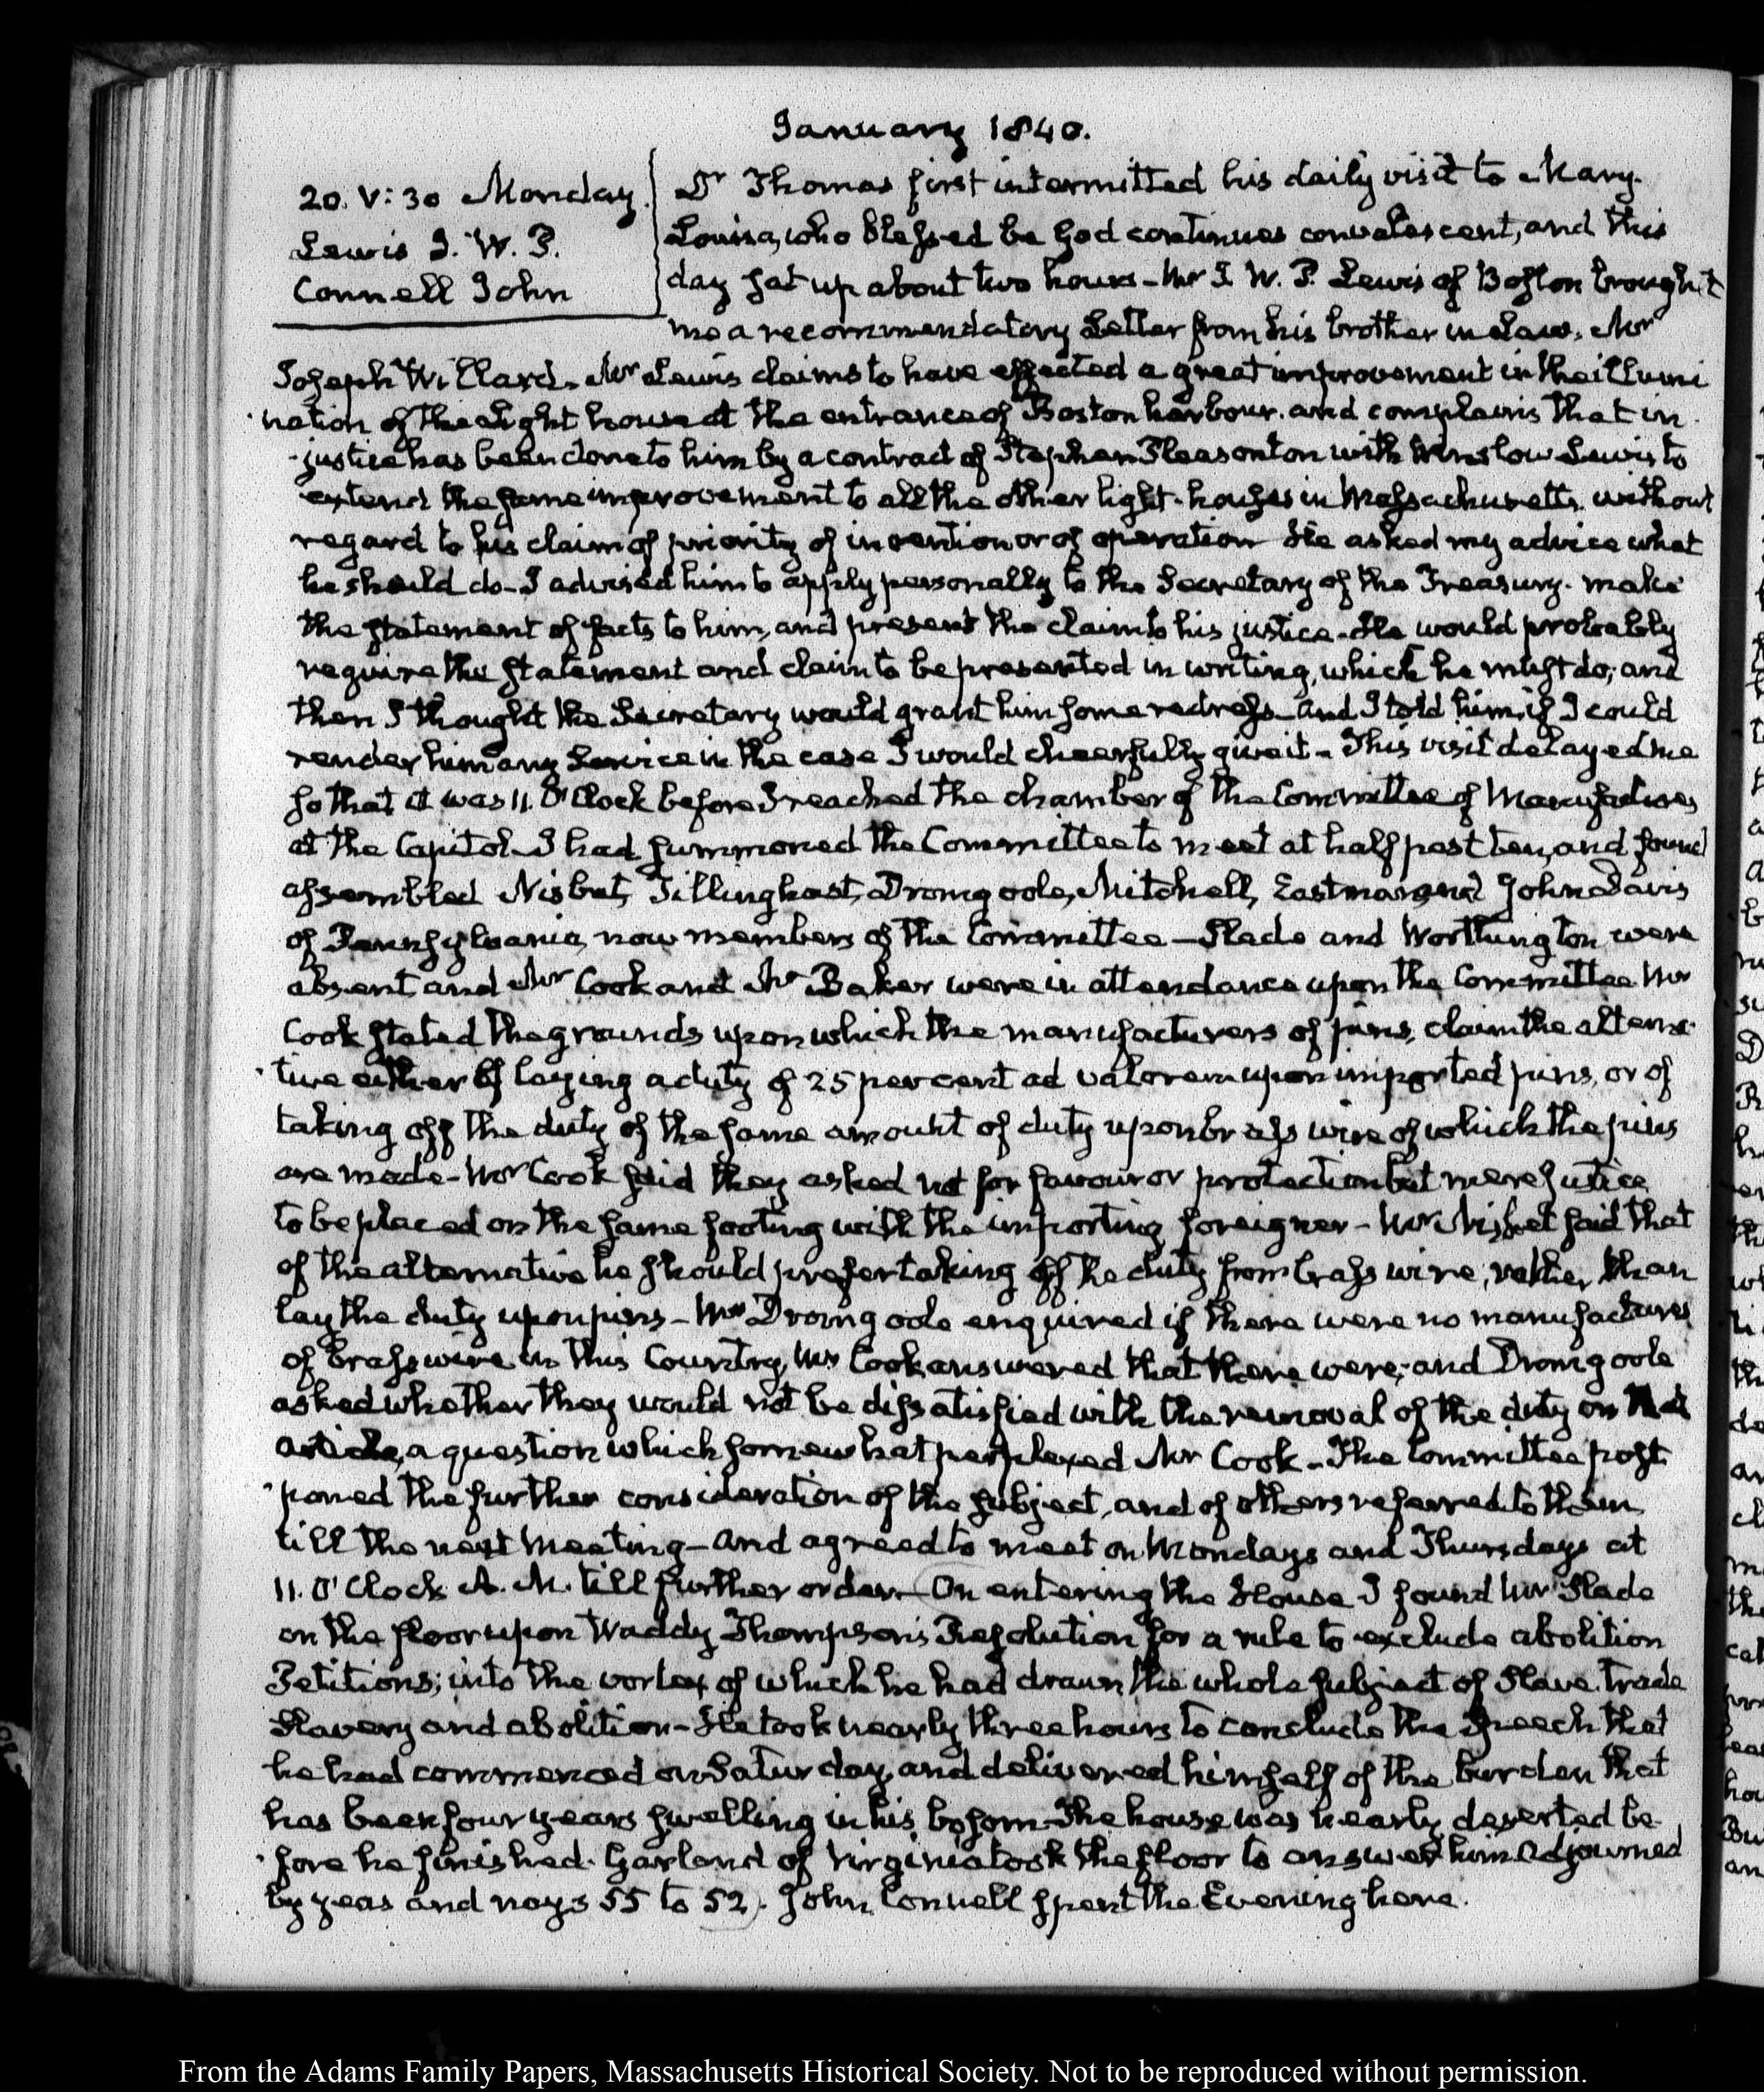 January 1840.
20. V:30 Monday.
Lewis I. W. P.
Connell John
Dr Thomas first intermitted his daily visit to Mary-
Louisa, who blessed be God continues convalescent, and this
day sat up about two hours - Mr I. W. P. Lewis of Boston brought
me a recommendatory Letter from his brother in Law, Mr
Joseph Willard. Mr Lewis claims to have effected a great improvement in the illumi
nation of the Light house at the entrance of Boston harbour. and complains that in
justice has been done to him by a contract of Stephen Pleasonton with Winslow Lewis to
extend the same improvement to all the other light-houses in Massachusetts. without
regard to his claim of priority of invention or of operation He asked my advice what
he should do - I advised him to apply personally to the Secretary of the Treasury. make
the statement of facts to him, and present the claim to his justice - He would probably
require the statement and claim to be presented in writing, which he must do; and
then I thought the Secretary would grant him some redress - and I told him, if I could
render him any Service in the case I would cheerfully give it - This visit delayed me
so that it was 11. O'Clock before I reached the chamber of the Committee of Manufactures
at the Capitol - I had summoned the Committee to meet at half past ten, and found
assembled Nisbet, Tillinghast, Dromgoole, Mitchell, Eastman and John Davis
of Pennsylvania, now members of the Committee - Slade and Worthington were
absent and Mr Cook and Mr Baker were in attendance upon the Committee Mr
Cook stated the grounds upon which the manufacturers of pins, claim the alterna-
tive either of laying a duty of 25 per cent ad valorem upon imported pins, or of
taking off the duty of the same amount of duty upon brass wire of which the pins
are made - Mr Cook said they asked not for favour or protection but mere justice
to be placed on the same footing with the importing foreigner - Mr Nisbet said that
of the alternative he should prefer taking off the duty from brass wire, rather than
lay the duty upon pins - Mr Dromgoole enquired if there were no manufactures
of brass wire in this Country, Mr Cook answered that there were; and Dromgoole
asked whether they would not be dissatisfied with the removal of the duty on that
article, a question which somewhat perplexed Mr Cook - The Committee post
poned the further consideration of the subject, and of others referred to them
till the next meeting - and agreed to meet on Mondays and Thursdays at
11. O'Clock A. M. till further order - On entering the House I found Mr Slade
on the floor upon Waddy Thompson's Resolution for a rule to exclude abolition
Petitions; into the vortex of which he had drawn the whole subject of Slave trade
Slavery and abolition - He took nearly three hours to conclude the speech that
he had commenced on Saturday, and delivered himself of the burden that
has been four years swelling in his bosom - The house was nearly deserted be-
fore he finished. Garland of Virginia took the floor to answer him Adjourned
by yeas and nays 55 to 52. John Connell spent the Evening here.
From the Adams Family Papers, Massachusetts Historical Society. Not to be reproduced without permission.